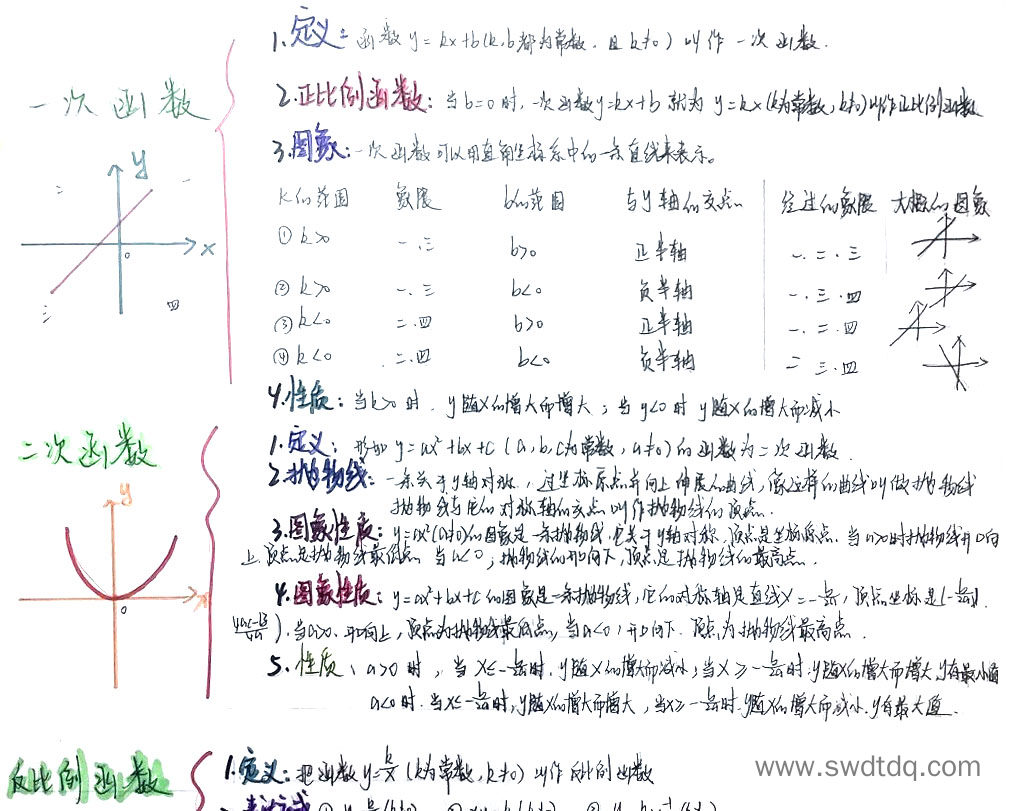 一次函数
1.定义:函数y=kx+b(k,b都为常数,且k≠0)叫作一次函数.
2.正比例函数:当b=0时,一次函数y=kx+b就为y=kx(k为常数,k≠0)叫作正比例函数
3.图象:一次函数可以用直角坐标系中的一条直线来表示。
y
二 一
x
o
三 四
k的范围 象限 b的范围 与y轴的交点 经过的象限 大概的图象
①k>0 一、三 b>0 正半轴 一、二、三
②k>0 一、三 b<0 负半轴 一、三、四
③k<0 二、四 b>0 正半轴 一、二、四
④k<0 二、四 b<0 负半轴 二 三、四
4.性质:当k>0时,y随x的增大而增大;当y<0时y随x的增大而减小
二次函数
y
x
o
1.定义:形如y=ax²+bx+c(a,b,c为常数,a≠0)的函数为二次函数.
2.抛物线:一条关于y轴对称,过坐标原点并向上伸展的曲线,像这样的曲线叫做抛物线
抛物线与它的对称轴的交点叫作抛物线的顶点.
3.图象性质:y=ax²(a≠0)的图象是一条抛物线,它关于y轴对称,顶点是坐标原点.当a>0时抛物线开口向
上,顶点是抛物线最低点 当a<0,抛物线的开口向下,顶点是抛物线的最高点.
4.图象性质:y=ax²+bx+c的图象是一条抛物线,它的对称轴是直线x=-b/2a,顶点坐标是(-b/2a,
4ac-b²/4a).当a>0,开口向上,顶点为抛物线最低点,当a<0,开口向下.顶点为抛物线最高点.
5.性质、a>0时,当x≤-b/2a时.y随x的增大而减小;当x≥-b/2a时.y随x的增大而增大,y有最小值
a<0时.当x≤-b/2a时,y随x的增大而增大,当x≥-b/2a时.y随x的增大而减小.y有最大值.
反比例函数
1.定义:把函数y=k/x(k为常数,k≠0)叫作反比例函数
www.swdtdq.com